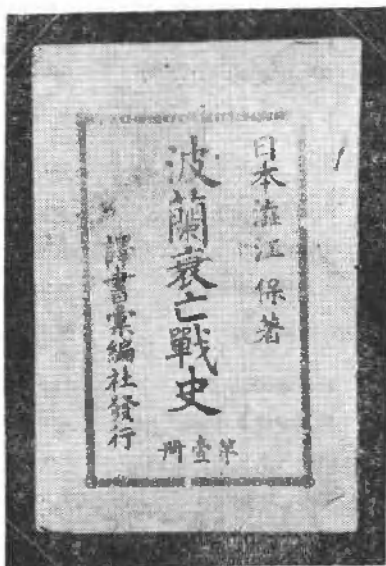 日本澁江保著
波蘭衰亡戰史
第壹册
譯書彙編社發行